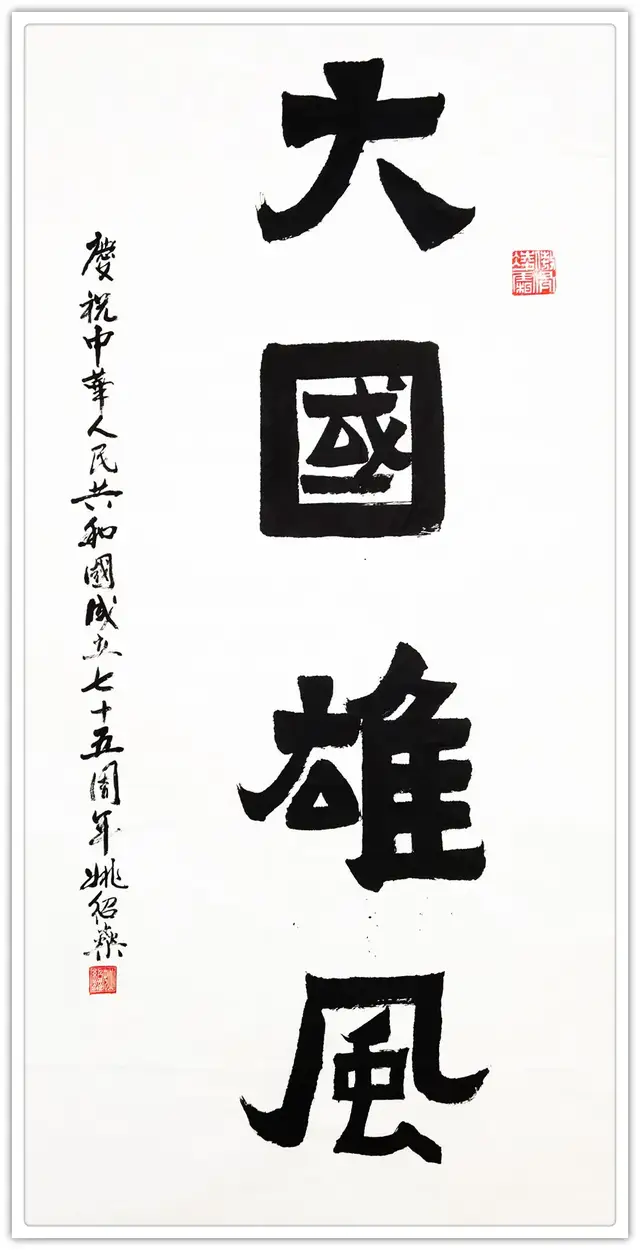 大國雄風
慶祝中華人民共和國成立七十五周年姚紹